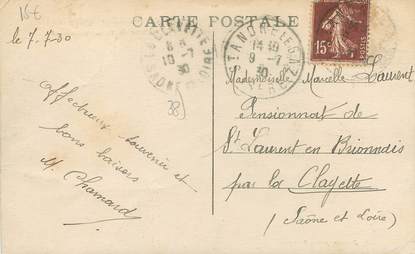 15c
CARTE POSTALE
le 7.7.30
8
10 -7
30
ST ANDRE LE GAZ
14 10
9 -7
30
ISERE
15c
POSTES
Affectueux souvenir et
bons baisers
M. Chamard
38
Mademoiselle Marcelle Laurent
Pensionnat de
St Laurent en Brionnais
par la Clayette
(Saône et Loire)